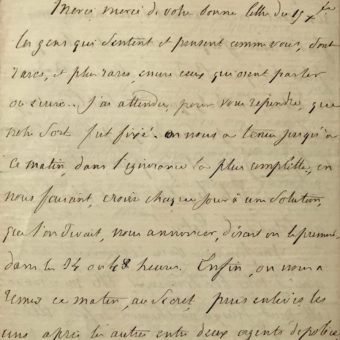 Merci, merci de votre bonne lettre du 15 X.bre
les gens qui sentent et pensent comme vous, sont
rares, et plus rares, encore ceux qui osent parler
ou écrire. J'ai attendu, pour vous repondre, que
notre sort fut fixé. on nous a tenu jusqu'à
ce matin, dans l'ignorance la plus complette, en
nous faisant, croire chaque jour à une solution
que l'on devait, nous annoncer, disait on le premier
dans les 24 ou 48 heures. Enfin, on nous a
ce matin, au Secret, puis enlevés les
uns après les autres entre deux agents de police,